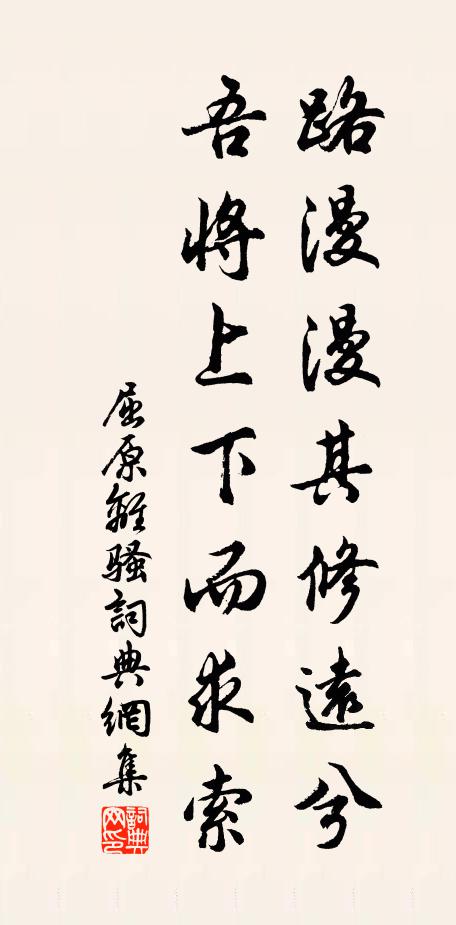 路漫漫其修遠兮
吾將上下而求索
屈原離騷詞典網集
詞典網印